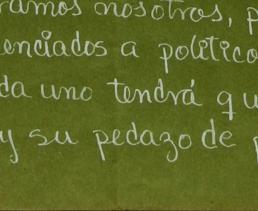 ramos nosotros, p
enciados a político
da uno tendrá qu
y su pedazo de p